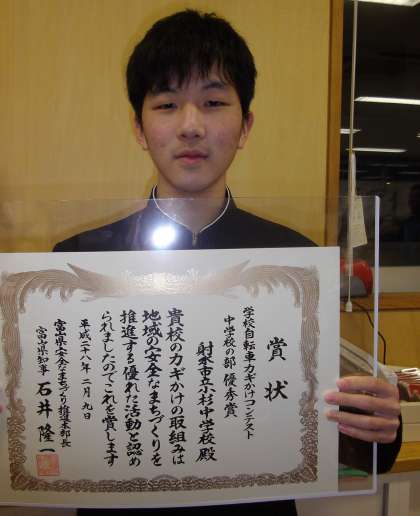 賞状
学校自転車カギかけコンテスト
中学校の部 優秀賞
射水市立小杉中学校 殿
貴校のカギかけの取組みは
地域の安全なまちづくりを
推進する優れた活動と認め
られましたのでこれを賞します
平成二十八年 二月 九日
富山県安全なまちづくり推進本部長
富山県知事 石井 隆一